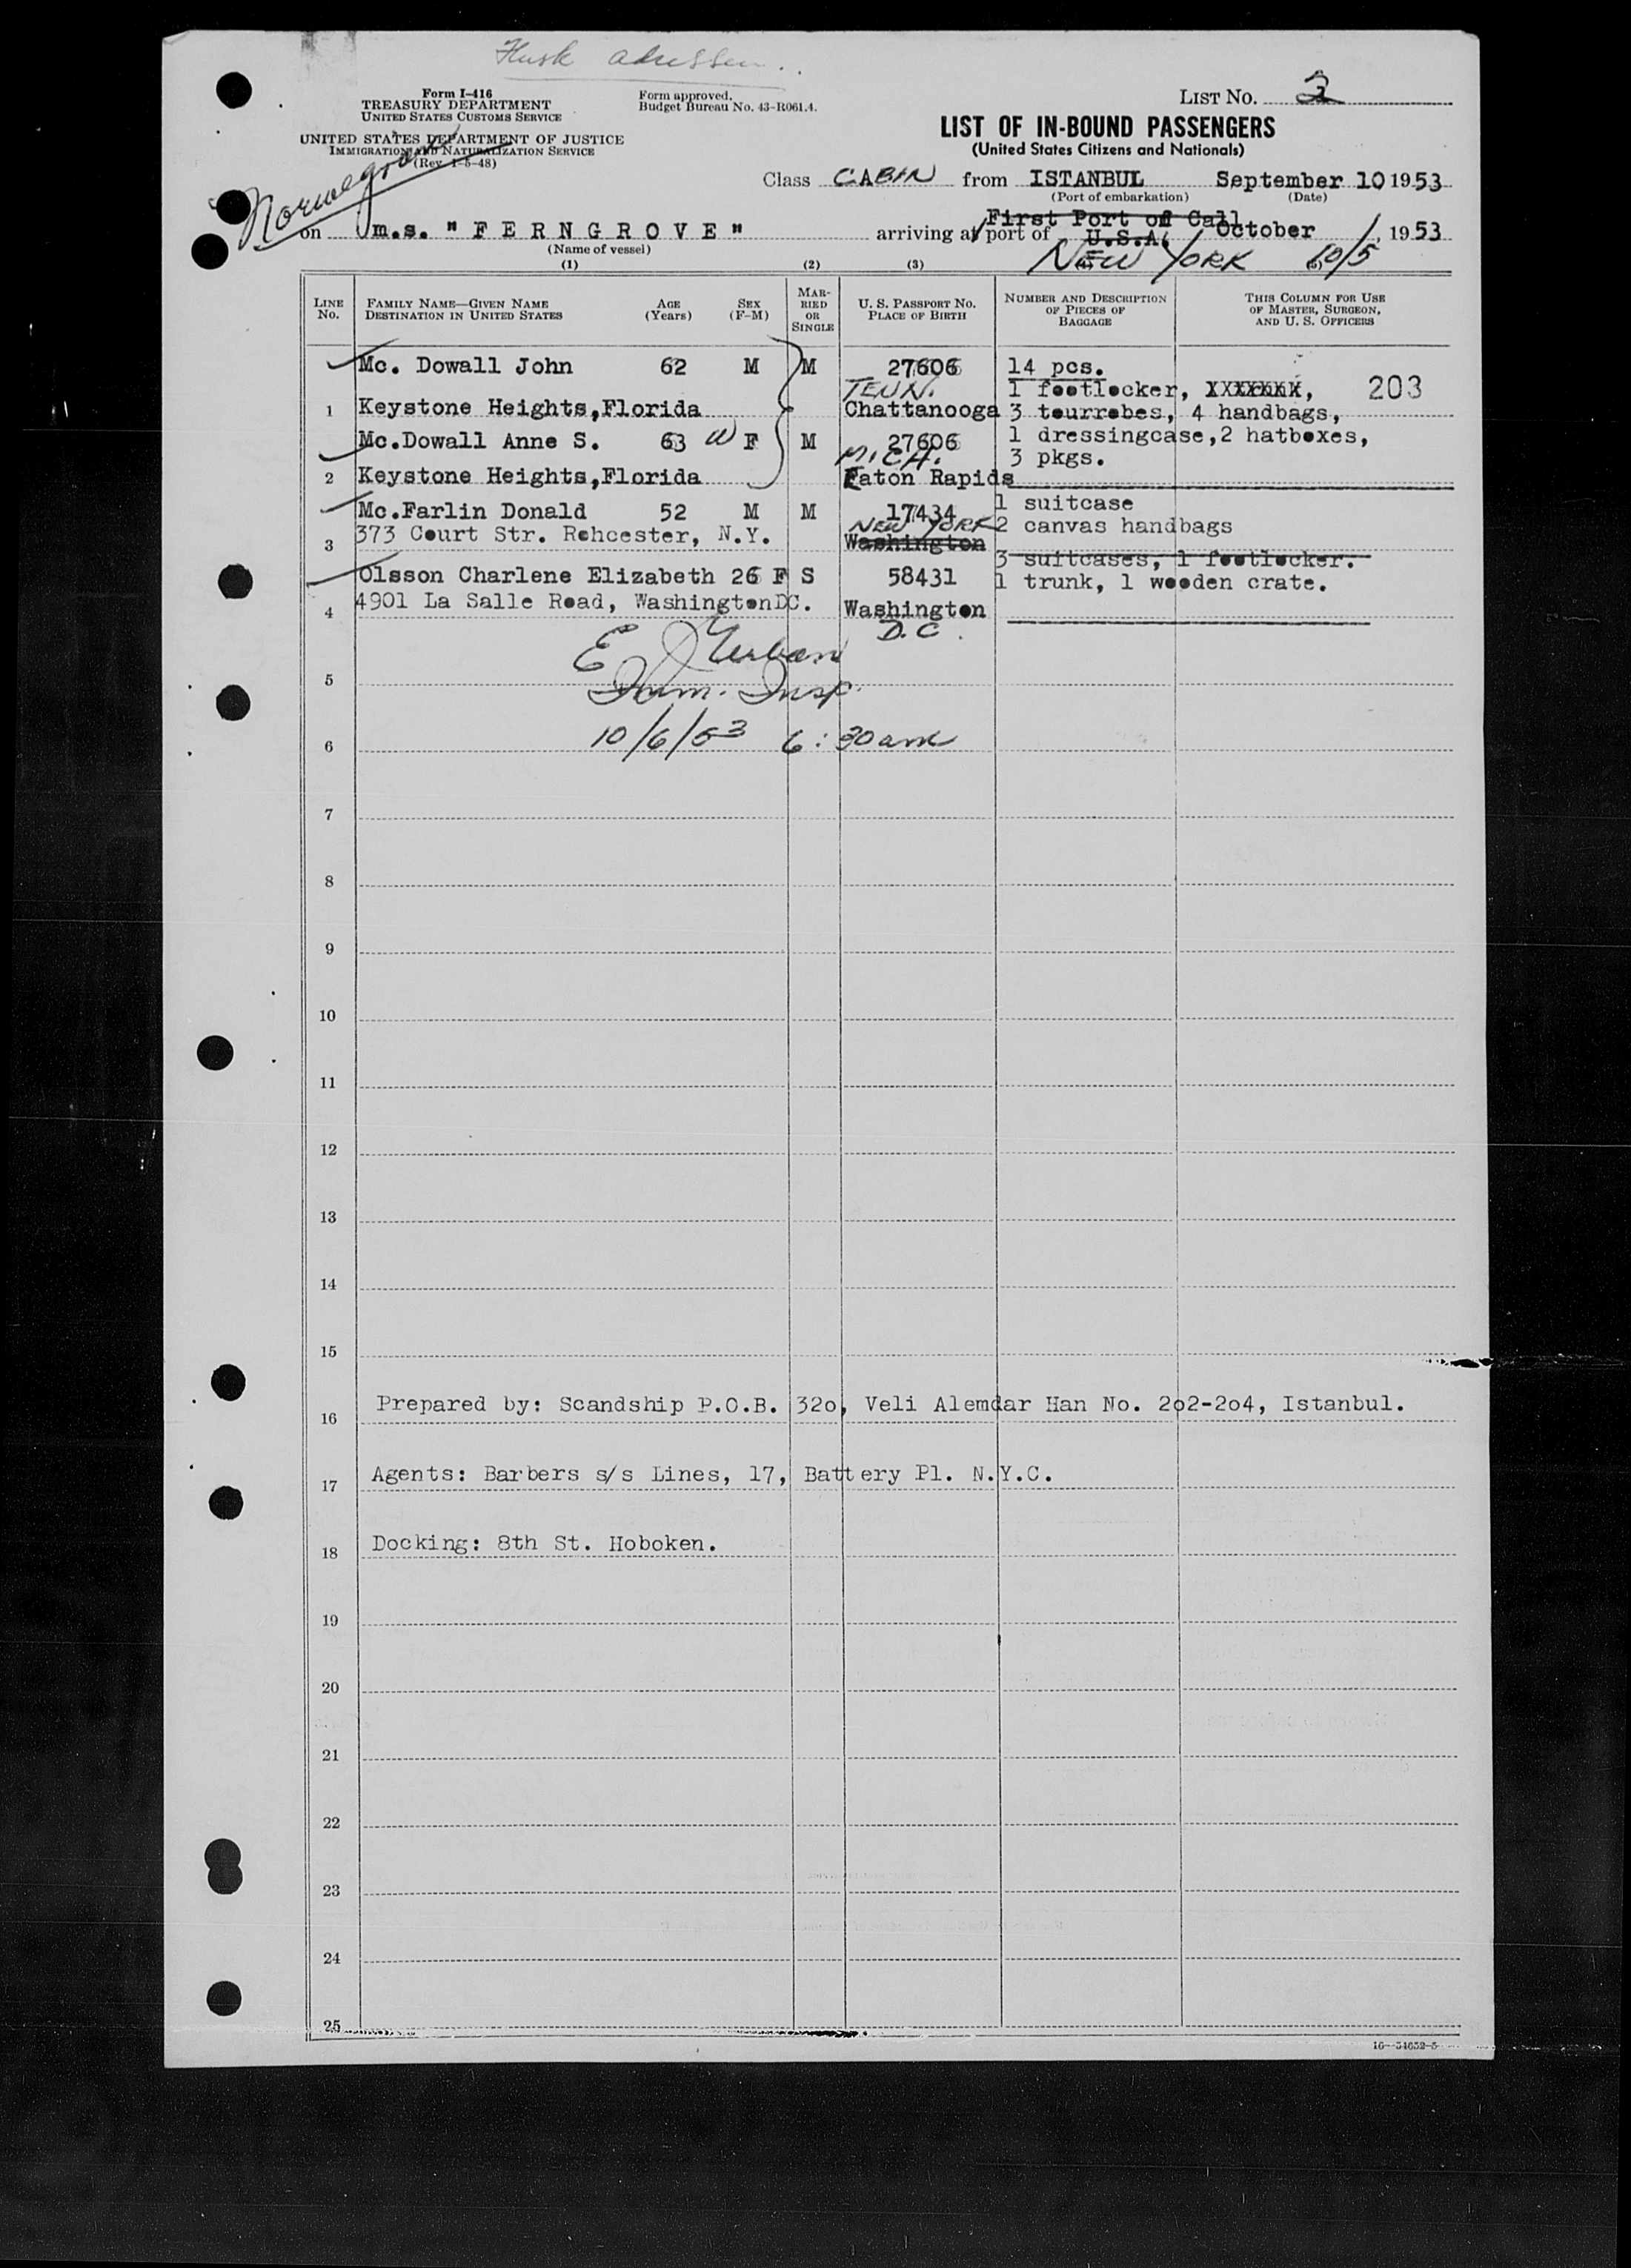 Husk adressen..
Form I-416
TREASURY DEPARTMENT
UNITED STATES CUSTOMS SERVICE
UNITED STATES DEPARTMENT OF JUSTICE
IMMIGRATION AND NATURALIZATION SERVICE
(Rev. 1-5-48)
Form approved.
Budget Bureau No. 43-R061.4.
LIST NO. 2
LIST OF IN-BOUND PASSENGERS
(United States Citizens and Nationals)
Norwegian
Class CABIN from ISTANBUL September 10 1953
(Port of embarkation) (Date)
First Port of Call
on m.s. "FERNGROVE" arriving at port of U.S.A. October , 1953
(Name of vessel) NEW YORK 10/5
(1) (2) (3) (4) (5)
LINE No. FAMILY NAME—GIVEN NAME DESTINATION IN UNITED STATES AGE (Years) SEX (F-M) MARRIED OR SINGLE U. S. PASSPORT NO. PLACE OF BIRTH NUMBER AND DESCRIPTION OF PIECES OF BAGGAGE THIS COLUMN FOR USE OF MASTER, SURGEON, AND U. S. OFFICERS
Mc. Dowall John 62 M M 27606 14 pcs.
TENN. 1 footlocker, XXXXXXX, 203
1 Keystone Heights,Florida Chattanooga 3 tourrobes, 4 handbags,
Mc.Dowall Anne S. 63 W F M 27606 1 dressingcase,2 hatboxes,
MICH. 3 pkgs.
2 Keystone Heights,Florida Eaton Rapids
Mc.Farlin Donald 52 M M 17434 1 suitcase
NEW YORK 2 canvas handbags
3 373 Court Str. Rohcester, N.Y. Washington
3 suitcases, 1 footlocker.
Olsson Charlene Elizabeth 26 F S 58431 1 trunk, 1 wooden crate.
4 4901 La Salle Road, WashingtonDC. Washington
D.C.
E J Urban
5 Imm. Insp.
6 10/6/53 6:30am
7
8
9
10
11
12
13
14
15
16 Prepared by: Scandship P.O.B. 32o, Veli Alemdar Han No. 2o2-2o4, Istanbul.
17 Agents: Barbers s/s Lines, 17, Battery Pl. N.Y.C.
18 Docking: 8th St. Hoboken.
19
20
21
22
23
24
25
16—54652-5